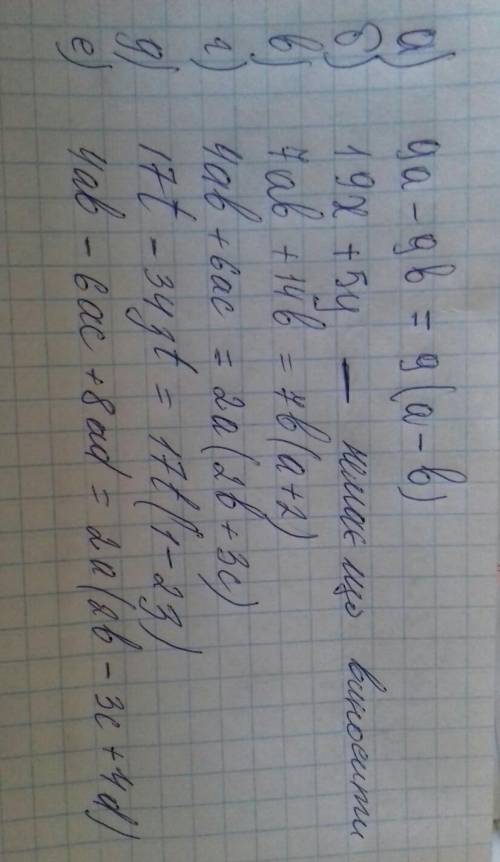 а) 9a - 9b = 9(a - b)
б) 19x + 5y — немає що виносити
в) 7ab + 14b = 7b(a+2)
г) 4ab + 6ac = 2a(2b + 3c)
д) 17t - 34zt = 17t(1 - 2z)
е) 4ab - 6ac + 8ad = 2a(2b - 3c + 4d)